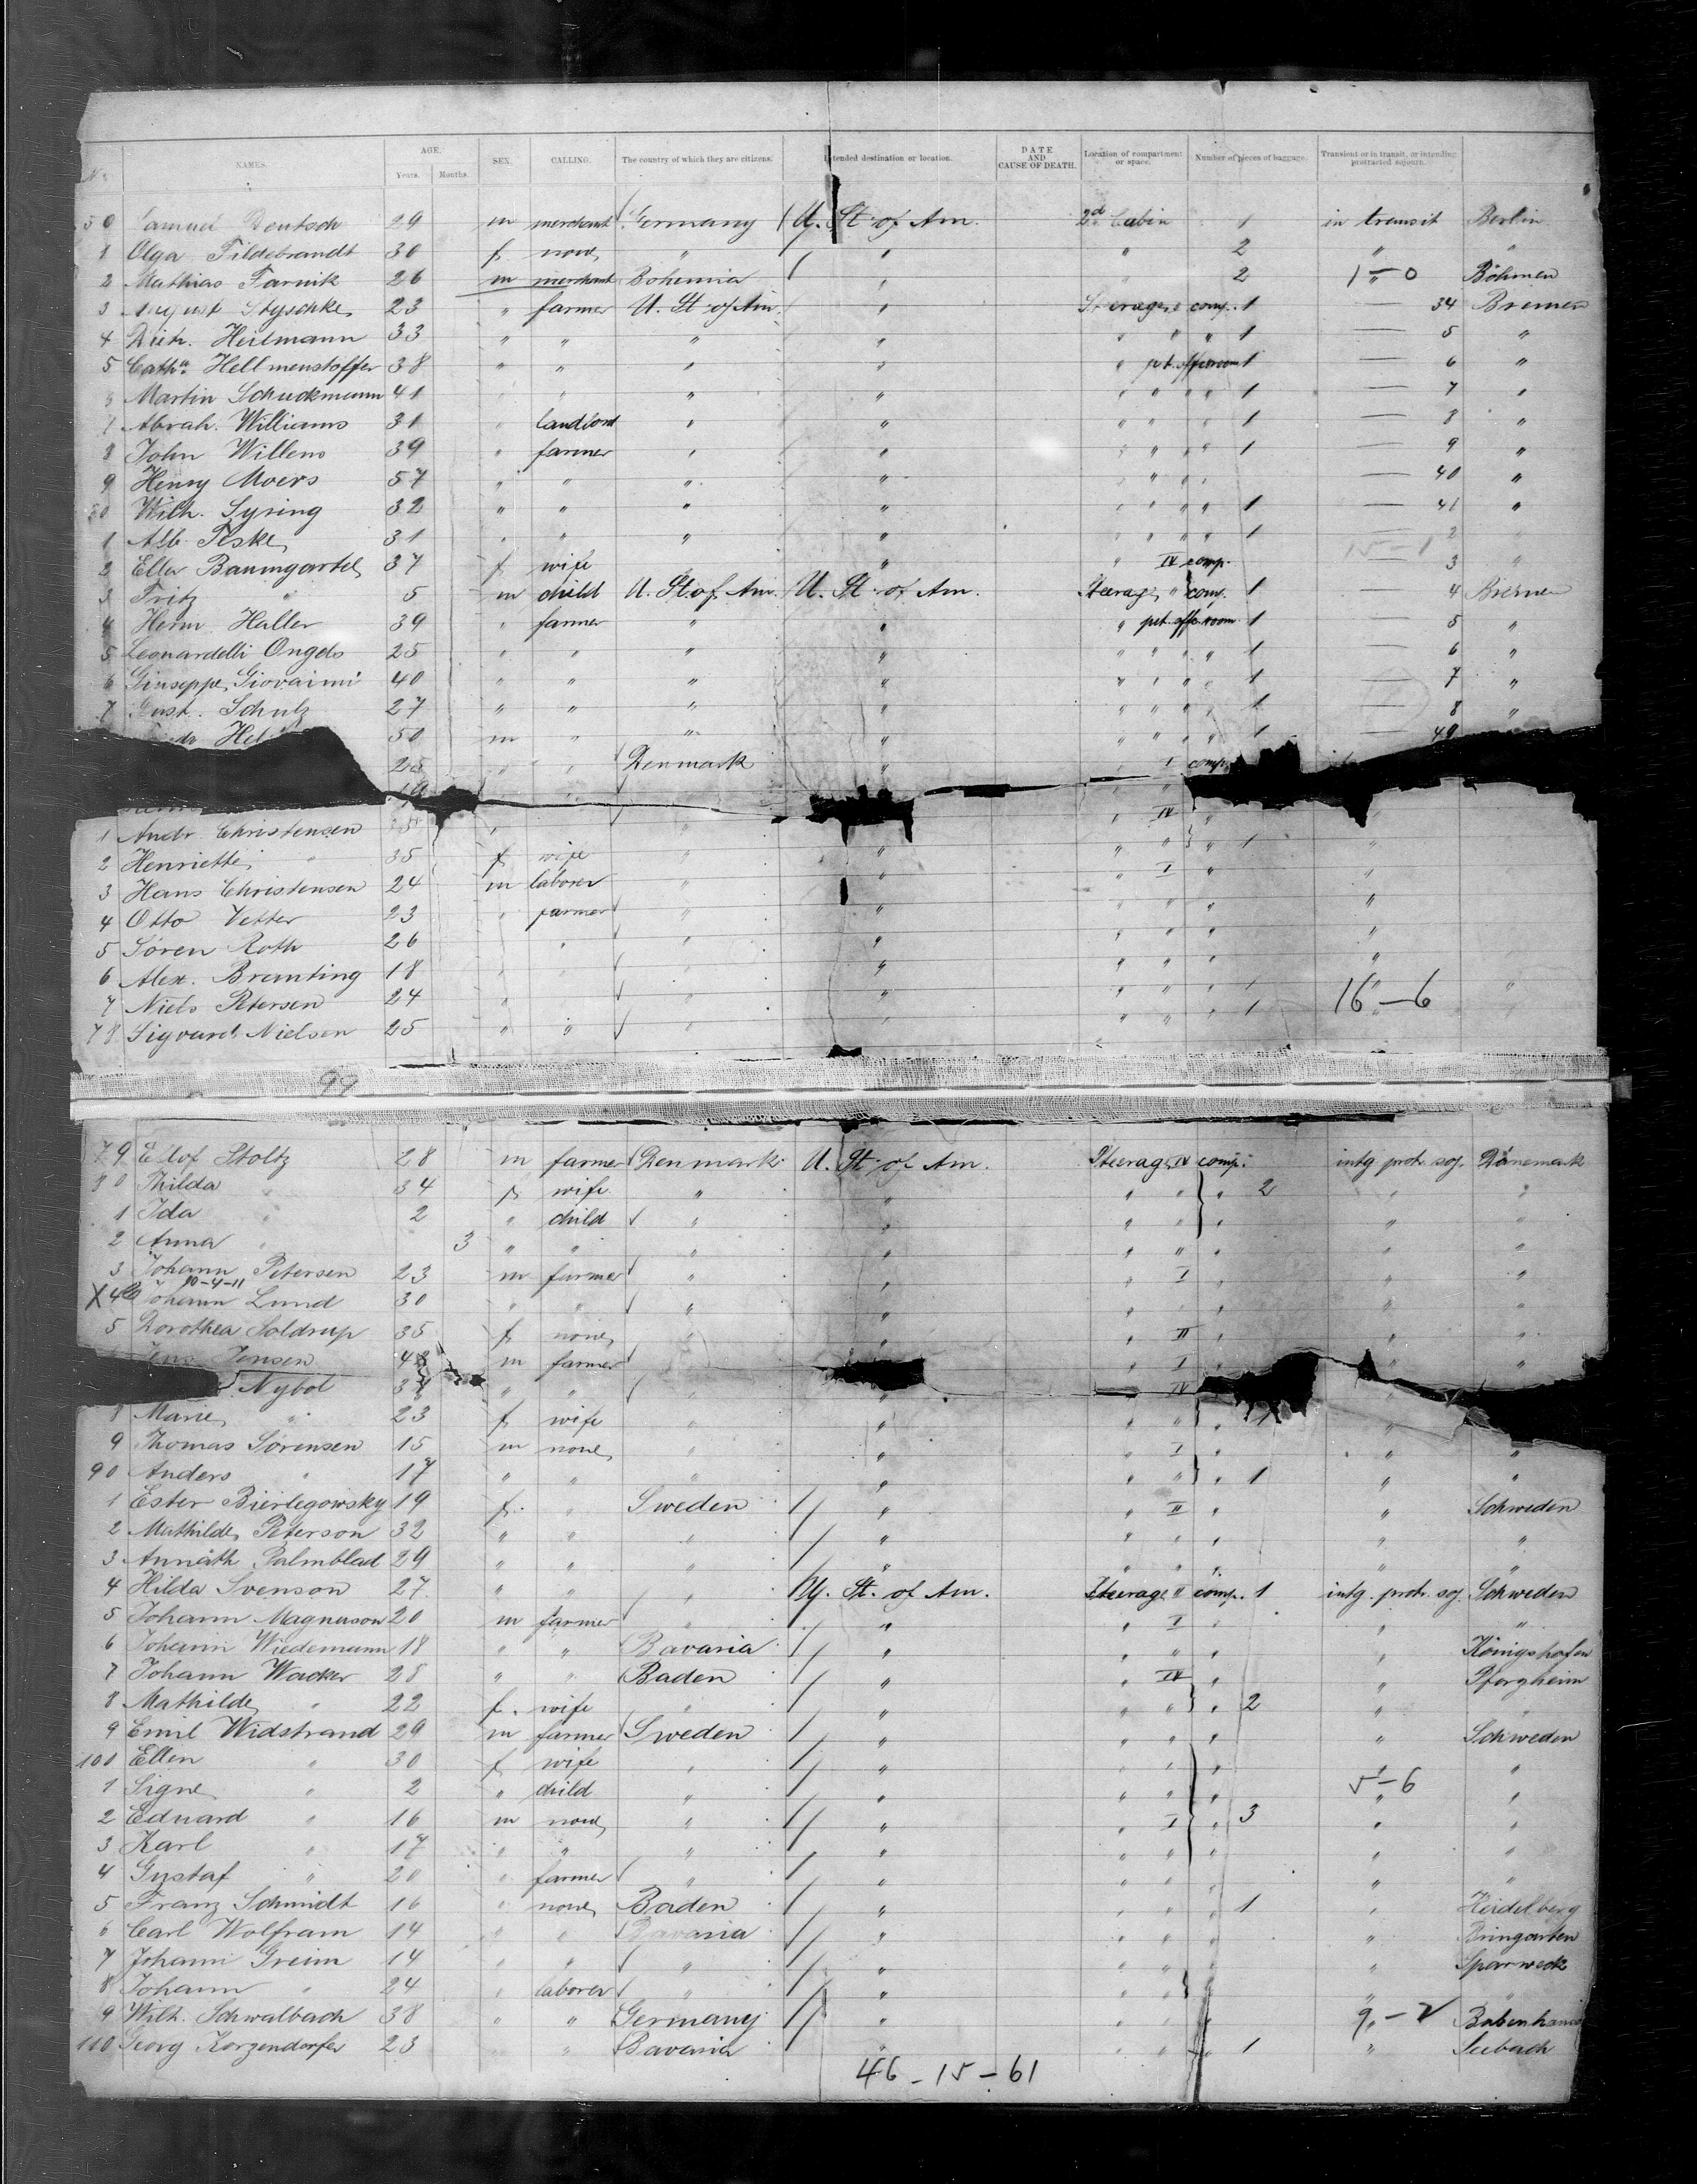 No. NAMES. AGE. Years. Months. SEX. CALLING. The country of which they are citizens. Intended destination or location. DATE AND CAUSE OF DEATH. Location of compartment or space. Number of pieces of baggage. Transient or in transit, or intending protracted sojourn.
50 Samuel Deutsch 29 m merchant Germany U. St. of Am. 2d Cabin 1 in transit Berlin
1 Olga Fildebrandt 30 f none " " " 2 " "
2 Mathias Farnik 26 m merchant Bohemia " " 2 " 1-0 Böhmen
3 August Styschke 23 " farmer U. St. of Am. " Steerage comp. 1 — 34 Bremen
4 Dieh. Heilmann 33 " " " " " " " 1 — 5 "
5 Cath. Hellmenstoffer 38 " " " " " pet. offe room 1 — 6 "
Martin Schuckmann 41 " " " " " " " 1 — 7 "
7 Abrah. Williams 31 " landlord " " " " 1 — 8 "
8 John Willems 39 " farmer " " " " " 1 — 9 "
9 Henry Moers 57 " " " " " " " — 40 "
60 Wilh. Syring 32 " " " " " " " 1 — 41 "
1 Alb. Teske 31 " " " " " " " 1 — 2 "
15-1
2 Ella Baumgartel 37 f wife " " IV comp. — 3 "
3 Fritz " 5 m child U. St. of Am. U. St. of Am. Steerage " comp. 1 — 4 Bremen
4 Herm. Haller 39 " farmer " " " pet. offe. room 1 — 5 "
5 Leonardelli Ongelo 25 " " " " " " " 1 — 6 "
6 Giuseppe Giovaimi 40 " " " " " " " 1 — 7 "
7 Gust. Schulz 27 " " " " " " " 1 — 8 "
50 m " " " " " " 1 — 49
25 " " Denmark " " I comp.
19 " "
1 Andr. Christensen " " IV "
2 Henriette " 35 f wife " " " " " 1 "
3 Hans Christensen 24 m laborer " " " I " "
4 Otto Vetter 23 " farmer " " " " " "
5 Sören Roth 26 " " " " " " "
6 Alex. Brunting 18 " " " " " " "
7 Niels Petersen 24 " " " " " " " 1 "
16-6
78 Sigvard Nielsen 25 " " " " " " " 1 "
99
79 Ellof Stoltz 28 m farmer Denmark U. St. of Am. Steerage IV comp. intg. protr. soj. Dänemark
80 Thilda " 34 f wife " " " " " 2 " "
1 Ida " 2 " child " " " " " " "
2 Anna " 3 " " " " " " " " "
3 Johann Petersen 23 m farmer " " " I " "
10-4-11
X 4 Johann Lund 30 " " " " " " " " "
5 Dorothea Soldrup 35 f none " " " II " " "
Jens Jensen m farmer " " I " "
Nybol " " " " IV "
8 Marie " 23 f wife " " " " " 1 "
9 Thomas Sörensen 15 m none " " " I " " "
90 Anders " 17 " " " " " " " 1 " "
1 Ester Bierlegowsky 19 f. " Sweden " " II " " Schweden
2 Mathilde Peterson 32 " " " " " " " " "
3 Annäth Palmblad 29 " " " " " " " " "
4 Hilda Svenson 27 " " " U. St. of Am. Steerage " comp. 1 intg. protr. soj. Schweden
5 Johann Magnuson 20 m farmer " " " I " " "
6 Johann Wiedemann 18 " " Bavaria " " " " " Königshofen
7 Johann Wacker 28 " " Baden " " IV " " Pforzheim
8 Mathilde " 22 f. wife " " " " " 2 " "
9 Emil Widstrand 29 m farmer Sweden " " " " " Schweden
100 Ellen " 30 f wife " " " " " " "
1 Signe " 2 " child " " " " " " "
5-6
2 Eduard " 16 m none " " " I " 3 " "
3 Karl " 17 " " " " " " " " "
4 Gustaf " 20 " farmer " " " " " " "
5 Franz Schmidt 16 " none Baden " " " " 1 " Heidelberg
6 Carl Wolfram 14 " " Bavaria " " " " " Pringarten
7 Johann Greim 14 " " " " " " " Sparneck
8 Johann " 24 " laborer " " " " " "
9 Wilh. Schwalbach 38 " " Germany " " " " 9-2 Babenhausen
110 Georg Korzendorfer 23 " Bavaria " " " " 1 " Seebach
46-15-61